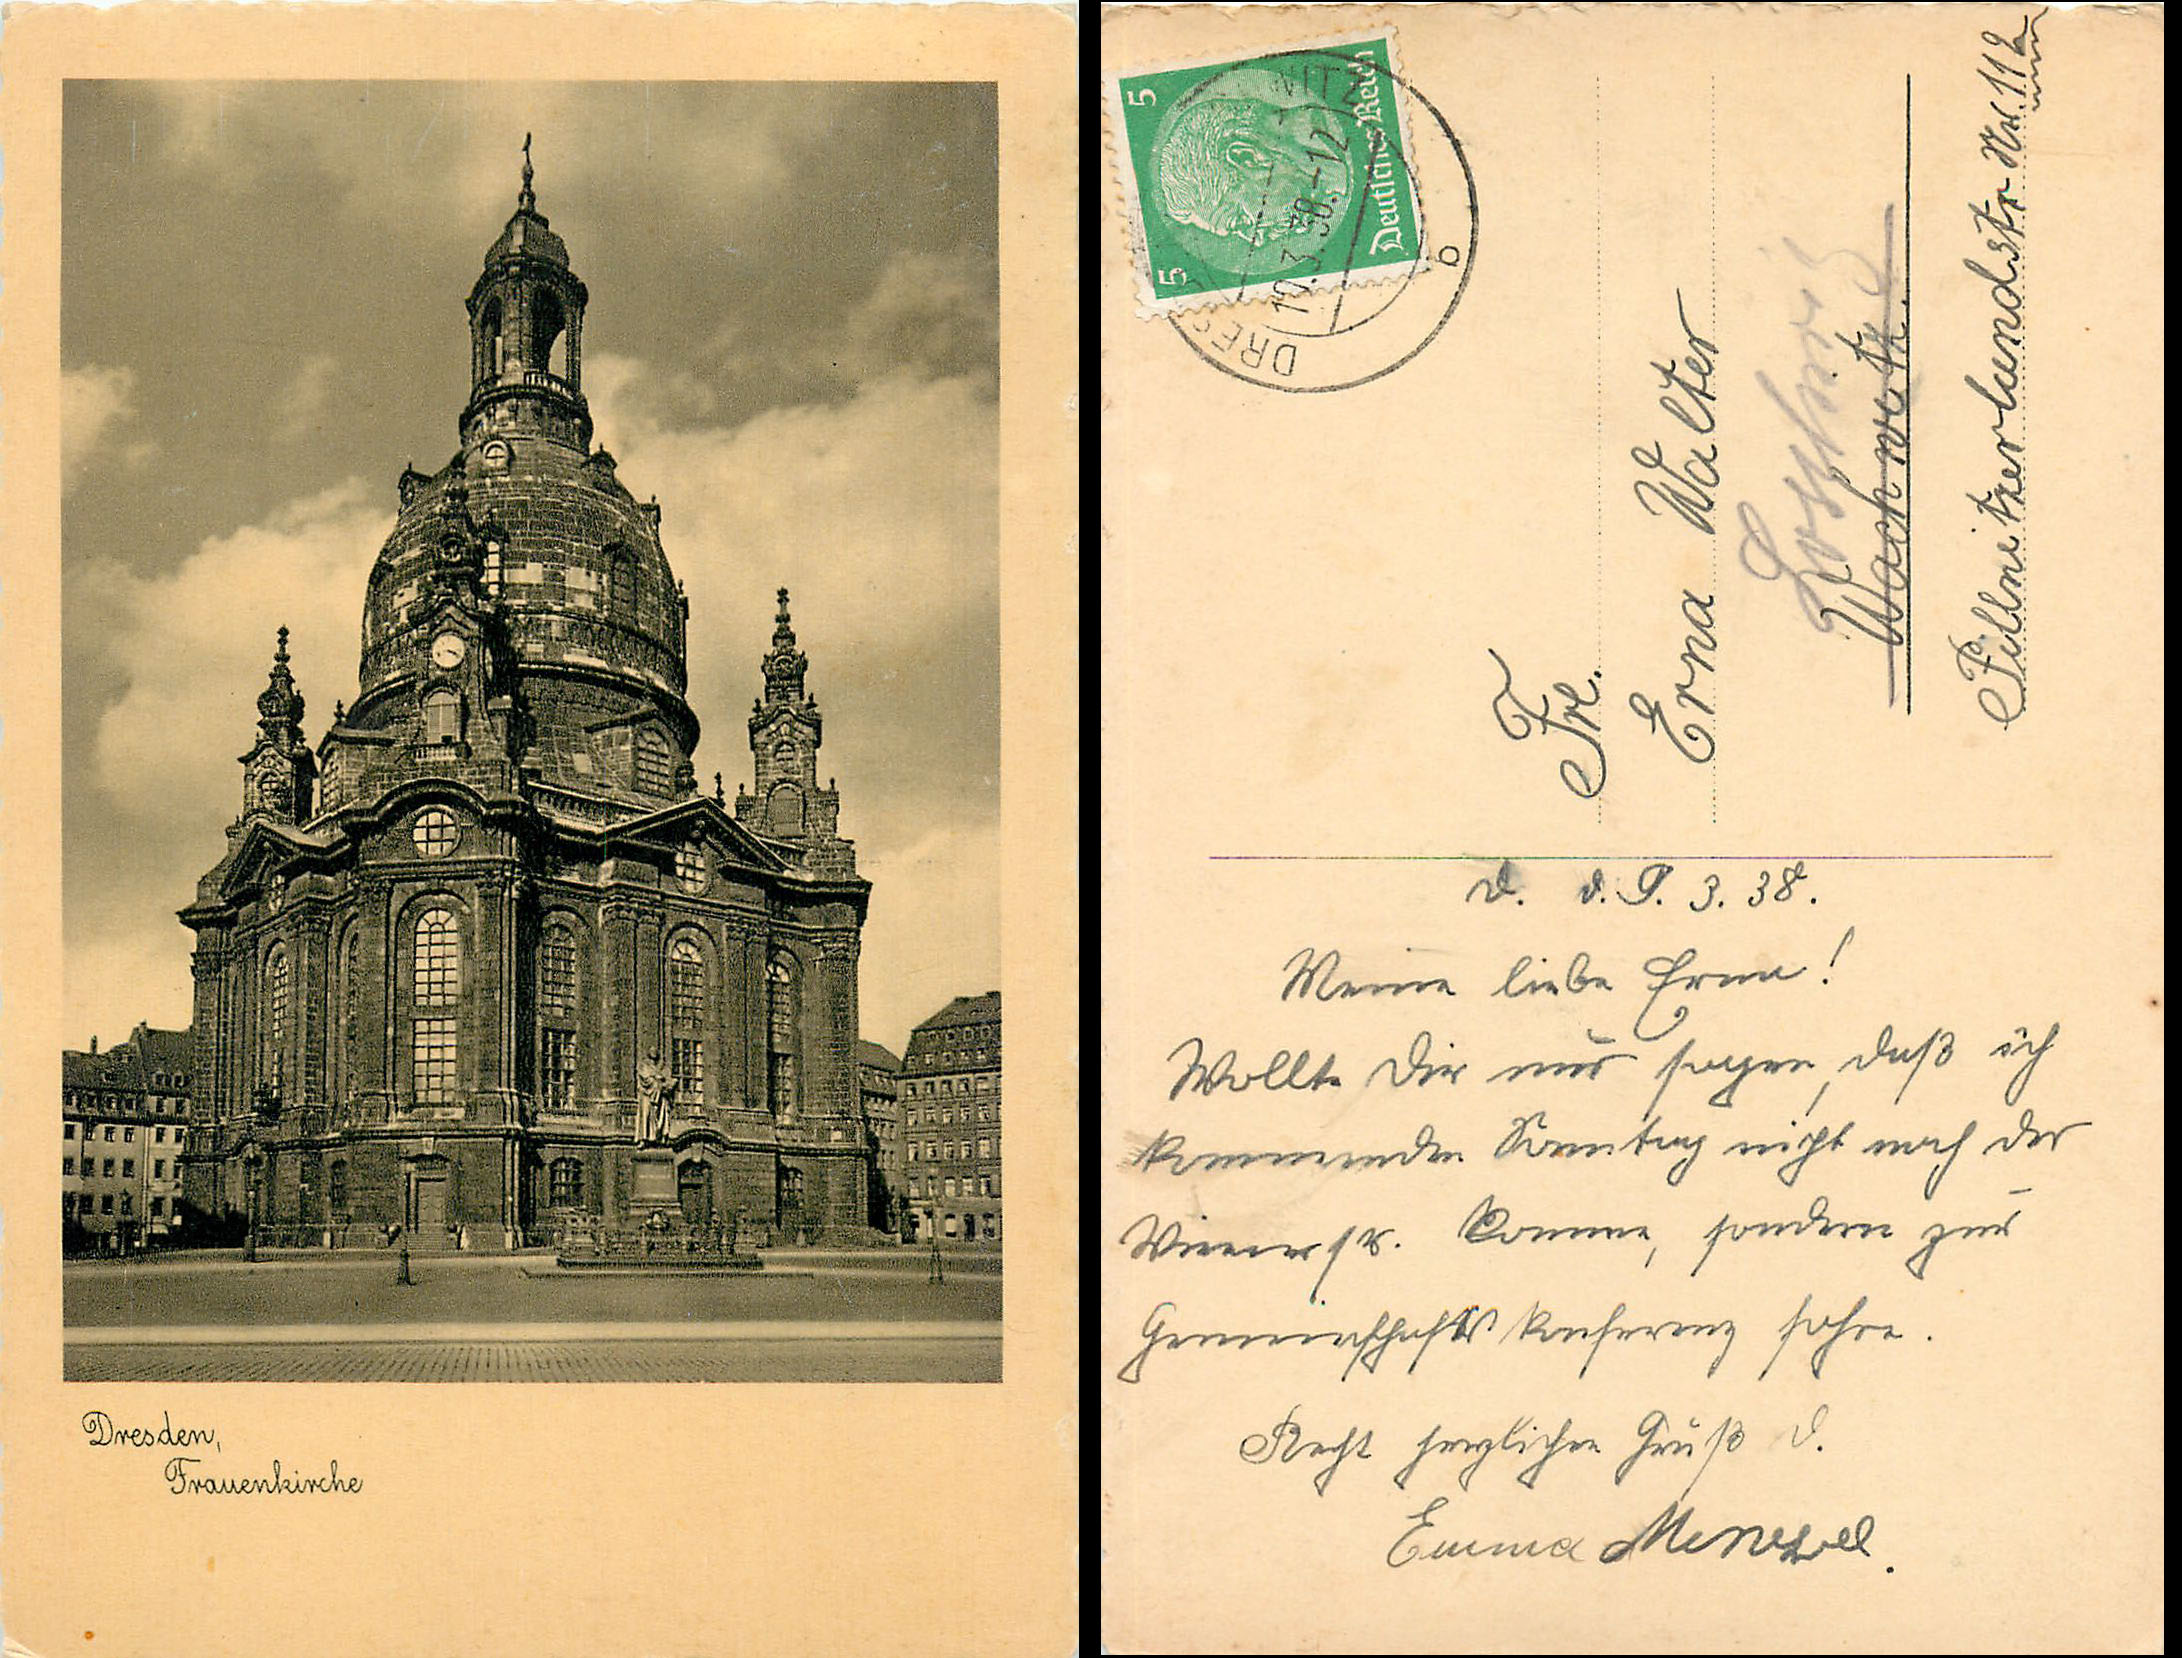 Dresden,
Frauenkirche
5
5
Deutsches Reich
DRES
WITZ
10.3.38.-12
b
Frl.
Erna Walter
Loschwitz
Wachwitz.
Pillnitzerlandstr. Nr. 112
D. d. 9. 3. 38.
Meine liebe Erna!
Wollte Dir nur sagen, daß ich
kommenden Sonntag nicht nach der
Wienerstr. komme, sondern zur
Gemeinschaftskonferenz fahre.
Recht herzlichen Gruß D.
Emma